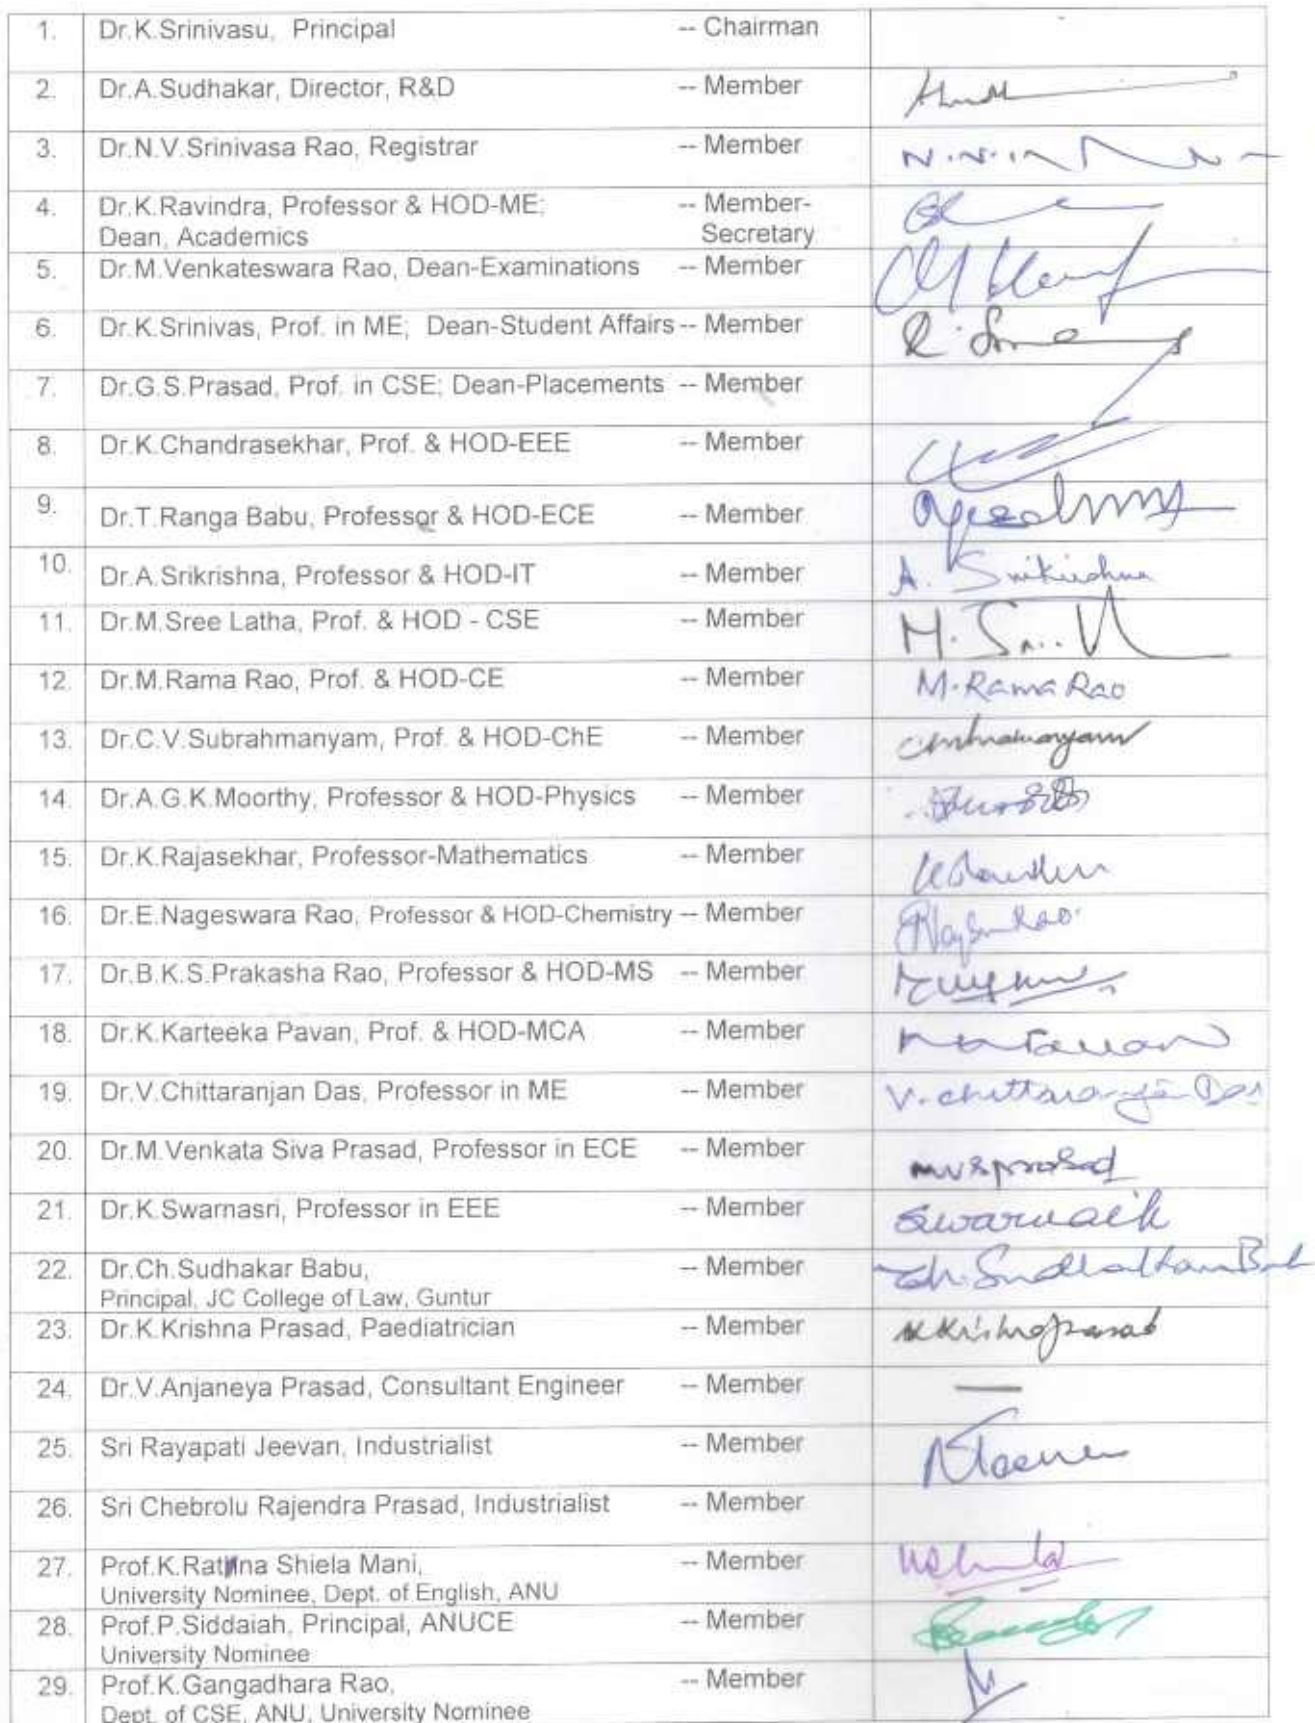 1. Dr.K.Srinivasu, Principal -- Chairman
2. Dr.A.Sudhakar, Director, R&D -- Member
3. Dr.N.V.Srinivasa Rao, Registrar -- Member
4. Dr.K.Ravindra, Professor & HOD-ME; -- Member-
Dean, Academics Secretary
5. Dr.M.Venkateswara Rao, Dean-Examinations -- Member
6. Dr.K.Srinivas, Prof. in ME; Dean-Student Affairs -- Member
7. Dr.G.S.Prasad, Prof. in CSE; Dean-Placements -- Member
8. Dr.K.Chandrasekhar, Prof. & HOD-EEE -- Member
9. Dr.T.Ranga Babu, Professor & HOD-ECE -- Member
10. Dr.A.Srikrishna, Professor & HOD-IT -- Member A. Srikrishna
11. Dr.M.Sree Latha, Prof. & HOD - CSE -- Member
12. Dr.M.Rama Rao, Prof. & HOD-CE -- Member M.Rama Rao
13. Dr.C.V.Subrahmanyam, Prof. & HOD-ChE -- Member
14. Dr.A.G.K.Moorthy, Professor & HOD-Physics -- Member
15. Dr.K.Rajasekhar, Professor-Mathematics -- Member
16. Dr.E.Nageswara Rao, Professor & HOD-Chemistry -- Member
17. Dr.B.K.S.Prakasha Rao, Professor & HOD-MS -- Member
18. Dr.K.Karteeka Pavan, Prof. & HOD-MCA -- Member
19. Dr.V.Chittaranjan Das, Professor in ME -- Member V.Chittaranjan Das
20. Dr.M.Venkata Siva Prasad, Professor in ECE -- Member mvsprasad
21. Dr.K.Swarnasri, Professor in EEE -- Member
22. Dr.Ch.Sudhakar Babu, -- Member
Principal, JC College of Law, Guntur
23. Dr.K.Krishna Prasad, Paediatrician -- Member KKrishnaprasad
24. Dr.V.Anjaneya Prasad, Consultant Engineer -- Member —
25. Sri Rayapati Jeevan, Industrialist -- Member
26. Sri Chebrolu Rajendra Prasad, Industrialist -- Member
27. Prof.K.Ratna Shiela Mani, -- Member
University Nominee, Dept. of English, ANU
28. Prof.P.Siddaiah, Principal, ANUCE -- Member
University Nominee
29. Prof.K.Gangadhara Rao, -- Member
Dept. of CSE, ANU, University Nominee